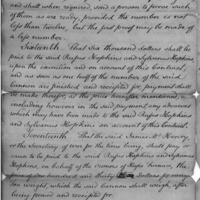 and shall when required, send a person to prove such
of them as are ready, provided the number is not
less than twelve but the first proof may be made of
a less number.
Sixteenth That Six thousand Dollars shall be
paid to the said Rufus Hopkins and Sylvanus Hopkins
upon the execution and on account of this Contract,
and as soon as one half of the number of the said
Cannon are finished and received for, payment shall
be made thereof at the price hereafter mentioned,
excluding however in the said payment any advances
which may have been made to the said
and Sylvanus Hopkins on account of this Contract.
Seventeenth That the said James McHenry,
or the Secretary of war for the time being, shall pay or
cause to be paid to the said Rufus Hopkins and Sylvanus
Hopkins, on behalf of the Owners of Hope Furnace, the
sum of One hundred and thirty Dollars for every
Ton weight, which the said Cannon shall weigh after
being proved and received for.